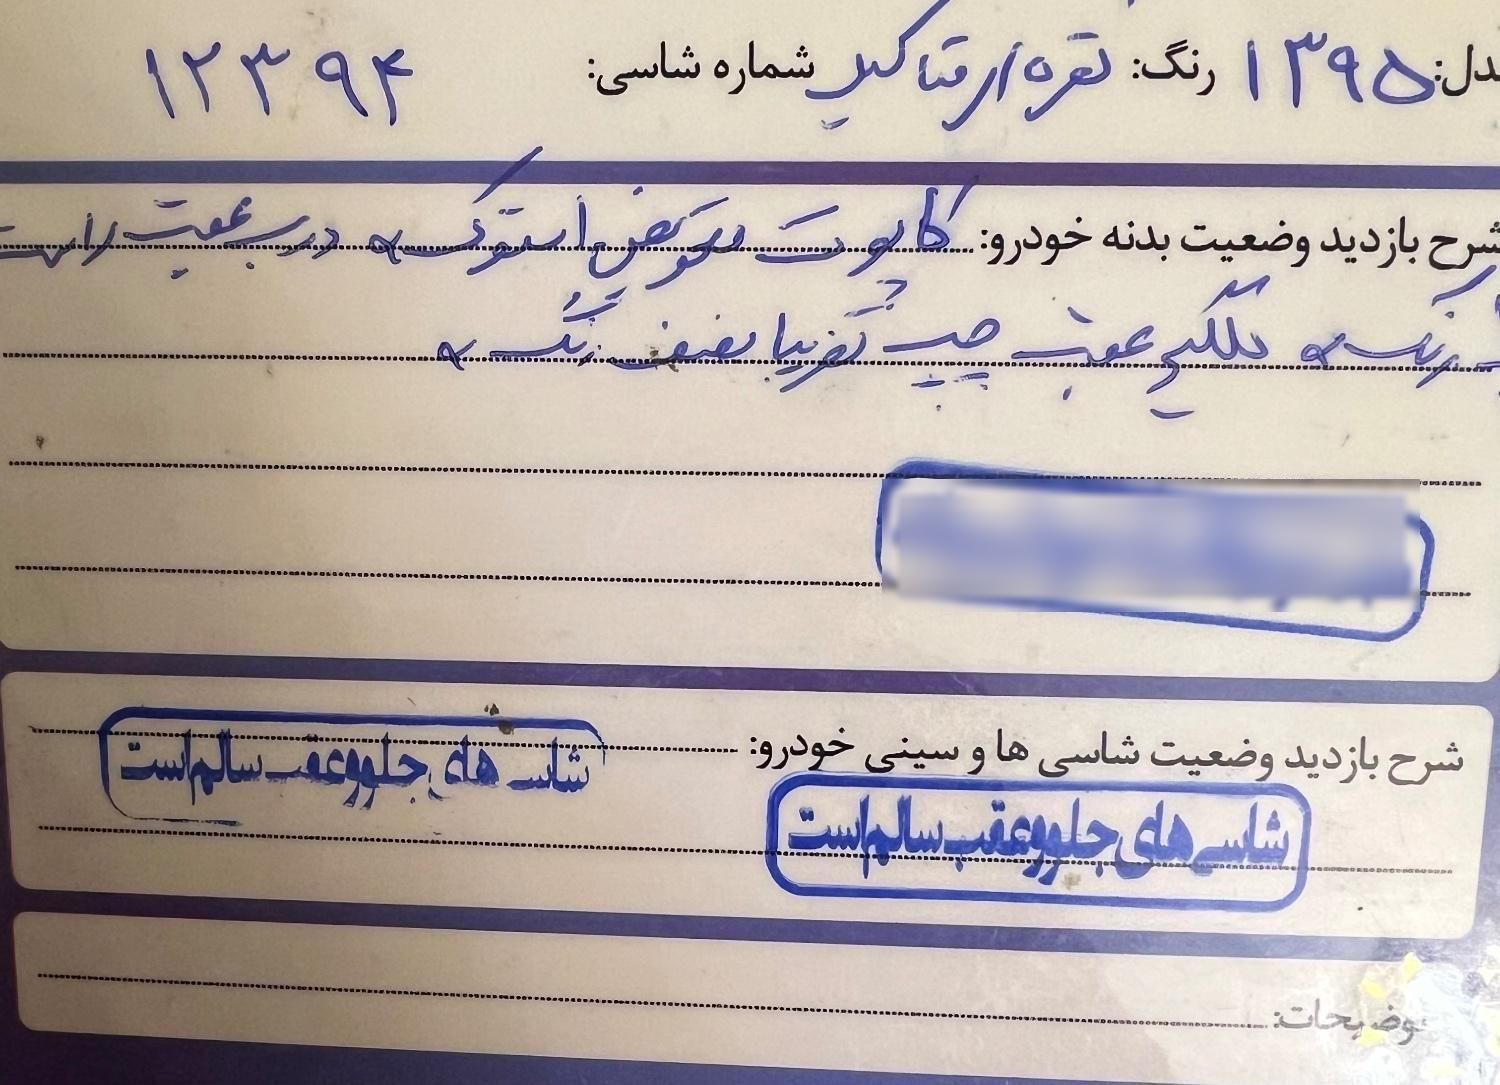 مدل: ۱۳۹۵ رنگ: نقره‌ای متالیک شماره شاسی: ۱۲۳۹۴
شرح بازدید وضعیت بدنه خودرو: کاپوت تعویض استوک درب عقب راست
رنگ گلگیر عقب چپ تقریبا نصف رنگ
شرح بازدید وضعیت شاسی ها و سینی خودرو: شاسی های جلو و عقب سالم است
شاسی های جلو و عقب سالم است
توضیحات: